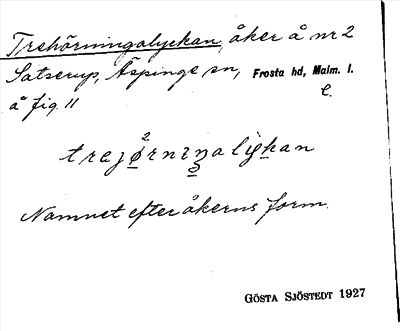 Trehörningalyckan, åker å nr 2
Satserup, Äspinge sn, Frosta hd, Malm. l.
å fig. 11
l.
Namnet efter åkerns form.
GÖSTA SJÖSTEDT 1927